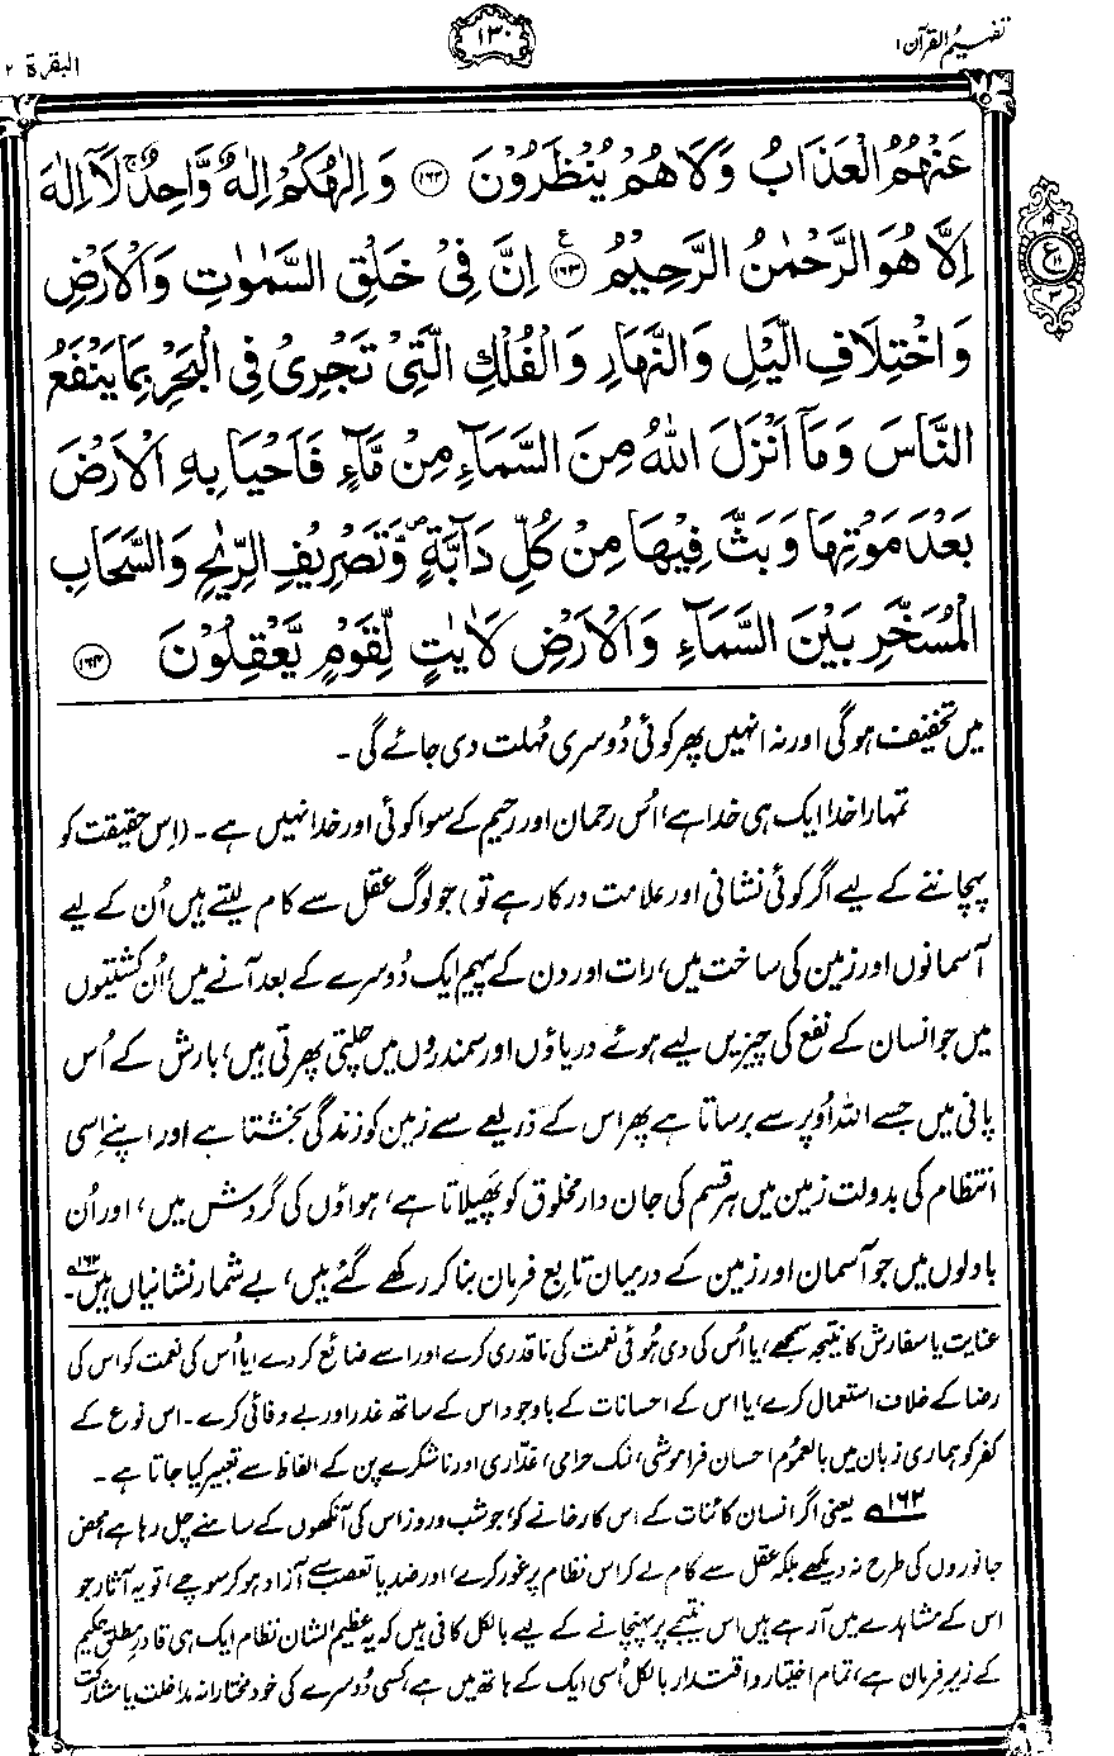 تفہیم القرآن ۱
۱۳۰
البقرۃ ۲
عَنْهُمُ الْعَذَابُ وَلَا هُمْ يُنْظَرُوْنَ ﴿۱۶۲﴾ وَاِلٰهُكُمْ اِلٰهٌ وَّاحِدٌ ۚ لَآ اِلٰهَ
اِلَّا هُوَ الرَّحْمٰنُ الرَّحِيْمُ ﴿۱۶۳﴾ ع اِنَّ فِيْ خَلْقِ السَّمٰوٰتِ وَالْاَرْضِ
وَاخْتِلَافِ الَّيْلِ وَالنَّهَارِ وَالْفُلْكِ الَّتِيْ تَجْرِيْ فِي الْبَحْرِ بِمَا يَنْفَعُ
النَّاسَ وَمَآ اَنْزَلَ اللّٰهُ مِنَ السَّمَآءِ مِنْ مَّآءٍ فَاَحْيَا بِهِ الْاَرْضَ
بَعْدَ مَوْتِهَا وَبَثَّ فِيْهَا مِنْ كُلِّ دَآبَّةٍ ۖ وَّتَصْرِيْفِ الرِّيٰحِ وَالسَّحَابِ
الْمُسَخَّرِ بَيْنَ السَّمَآءِ وَالْاَرْضِ لَاٰيٰتٍ لِّقَوْمٍ يَّعْقِلُوْنَ ﴿۱۶۴﴾
میں تخفیف ہوگی اور نہ انہیں پھر کوئی دُوسری مُہلت دی جائے گی۔
تمہارا خدا ایک ہی خدا ہے، اُس رحمان اور رحیم کے سوا کوئی اور خدا نہیں ہے۔ (اِس حقیقت کو
پہچاننے کے لیے اگر کوئی نشانی اور علامت درکار ہے تو) جو لوگ عقل سے کام لیتے ہیں اُن کے لیے
آسمانوں اور زمین کی ساخت میں، رات اور دن کے پیہم ایک دُوسرے کے بعد آنے میں، اُن کشتیوں
میں جو انسان کے نفع کی چیزیں لیے ہوئے دریاؤں اور سمندروں میں چلتی پھرتی ہیں، بارش کے اُس
پانی میں جسے اللہ اُوپر سے برساتا ہے پھر اس کے ذریعے سے زمین کو زندگی بخشتا ہے اور اپنے اِسی
انتظام کی بدولت زمین میں ہر قسم کی جان دار مخلوق کو پھیلاتا ہے، ہواؤں کی گردش میں، اور اُن
بادلوں میں جو آسمان اور زمین کے درمیان تابع فرمان بنا کر رکھے گئے ہیں، بے شمار نشانیاں ہیں۔ ۱۶۲
عنایت یا سفارش کا نتیجہ سمجھے، یا اُس کی دی ہُوئی نعمت کی ناقدری کرے اور اسے ضائع کر دے، یا اُس کی نعمت کو اس کی
رضا کے خلاف استعمال کرے، یا اس کے احسانات کے باوجود اس کے ساتھ غدر اور بے وفائی کرے۔ اس نوع کے
کفر کو ہماری زبان میں بالعموم احسان فراموشی، نمک حرامی، غدّاری اور ناشکرے پن کے الفاظ سے تعبیر کیا جاتا ہے۔
۱۶۲ یعنی اگر انسان کائنات کے اس کارخانے کو، جو شب و روز اس کی آنکھوں کے سامنے چل رہا ہے، محض
جانوروں کی طرح نہ دیکھے بلکہ عقل سے کام لے کر اس نظام پر غور کرے، اور ضد یا تعصب سے آزاد ہو کر سوچے، تو یہ آثار جو
اس کے مشاہدے میں آ رہے ہیں اس نتیجے پر پہنچانے کے لیے بالکل کافی ہیں کہ یہ عظیم الشان نظام ایک ہی قادرِ مطلق حکیم
کے زیرِ فرمان ہے، تمام اختیار و اقتدار بالکل اُسی ایک کے ہاتھ میں ہے، کسی دُوسرے کی خود مختارانہ مداخلت یا مشارکت